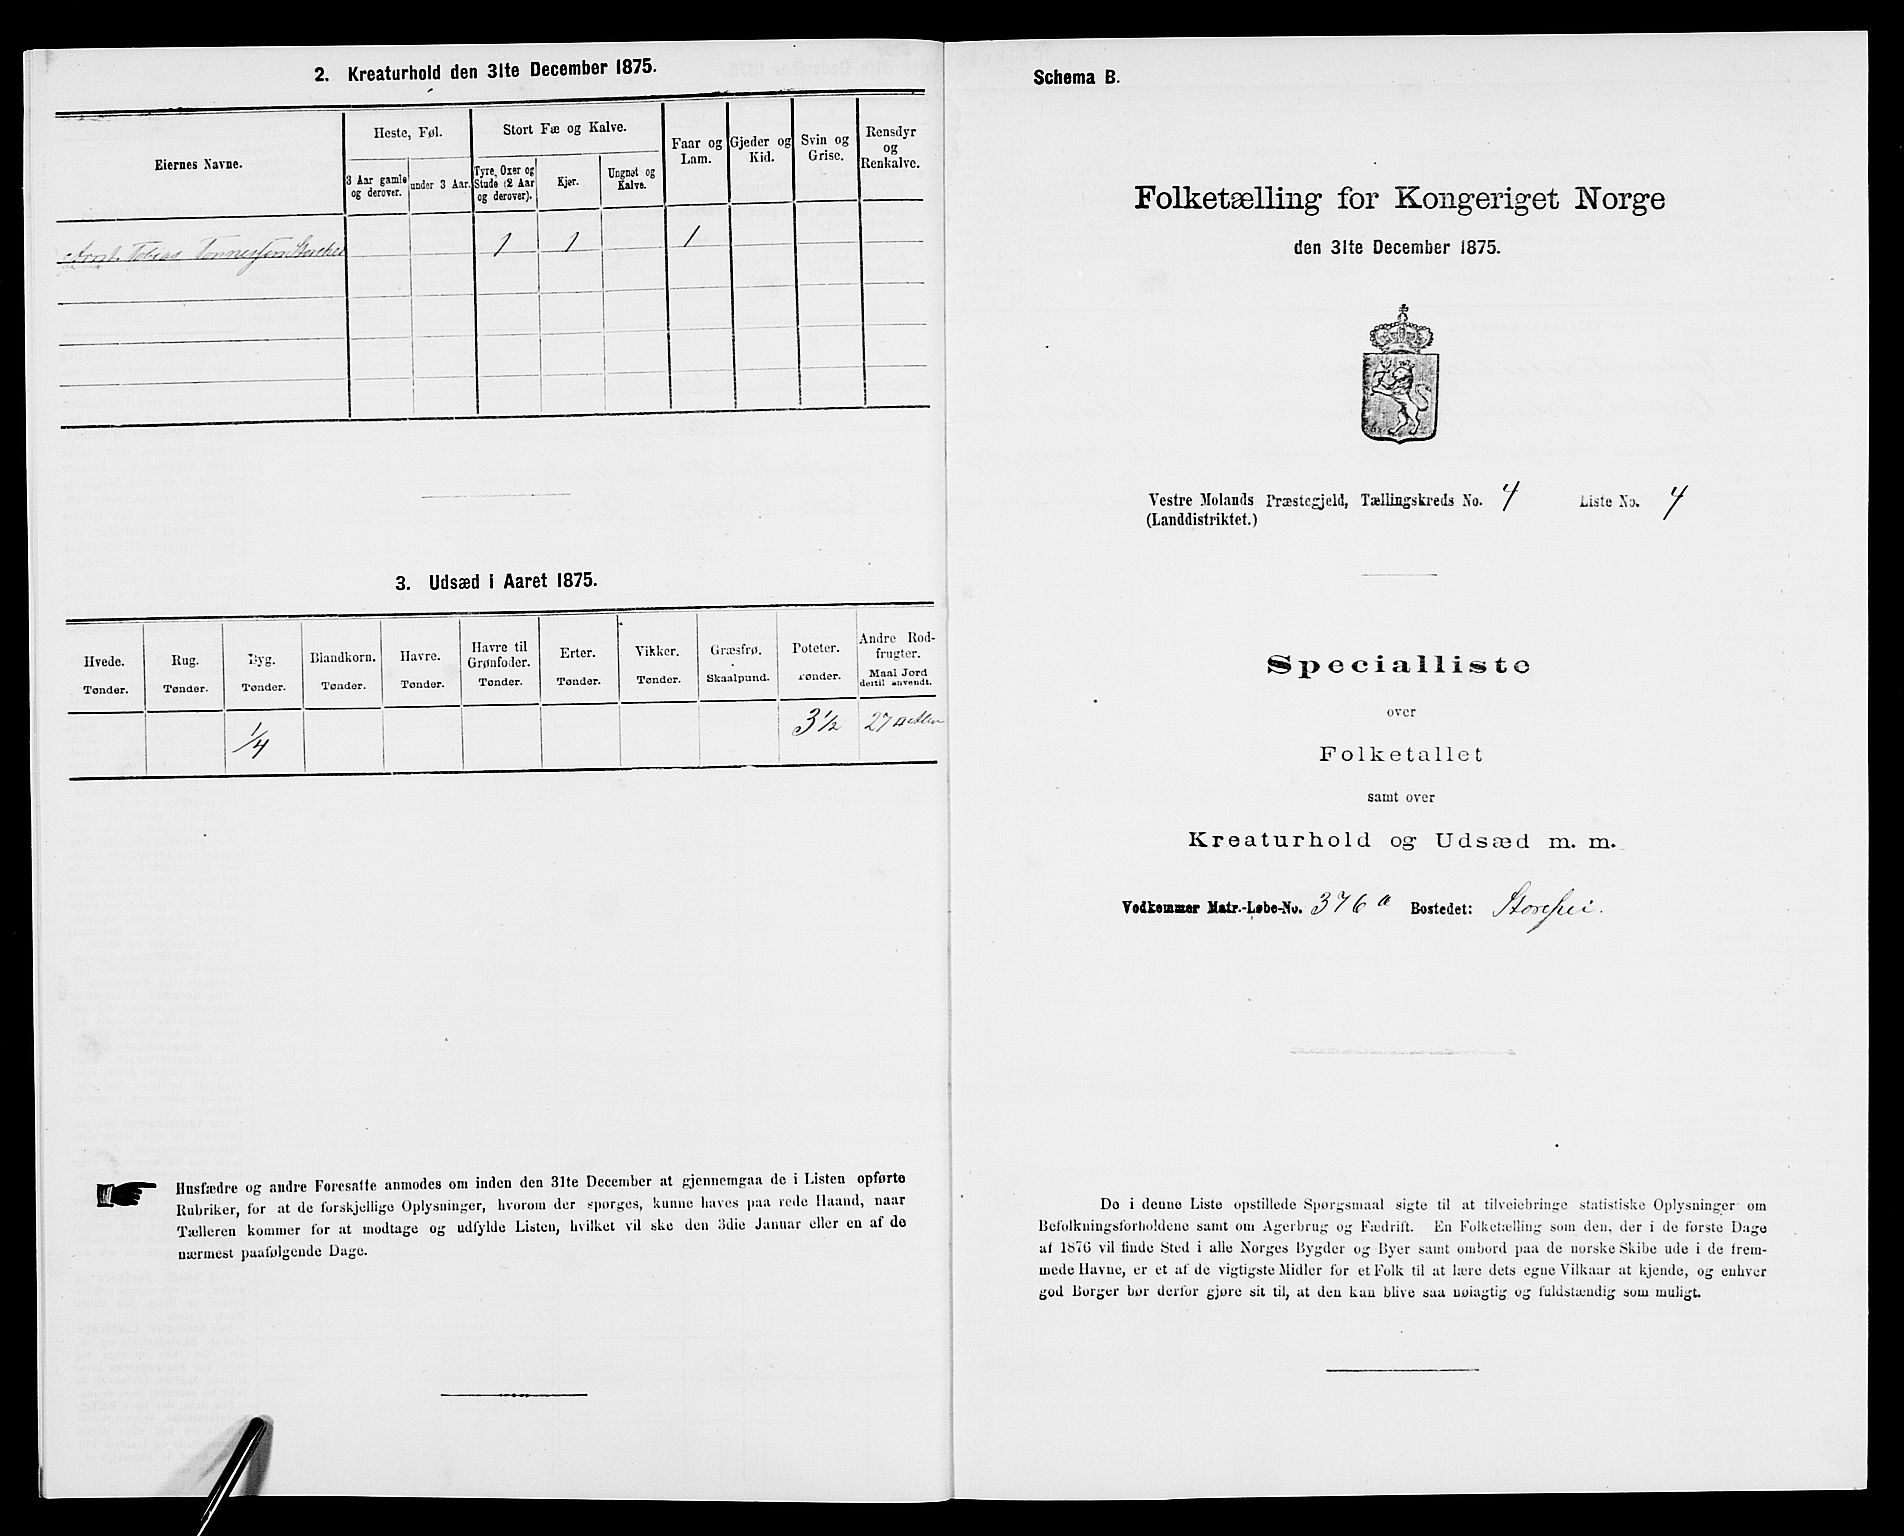 2. Kreaturhold den 31te December 1875.
Eiernes Navne.
Heste, Føl.
3 Aar gamle og derover.
under 3 Aar.
Stort Fæ og Kalve.
Tyre, Oxer og Stude (2 Aar og derover).
Kjør.
Ungnøt og Kalve.
Faar og Lam.
Gjeder og Kid.
Svin og Grise.
Rensdyr og Renkalve.
Tobias Tønnessen 1 1 1
3. Udsæd i Aaret 1875.
Hvede. Tønder.
Rug. Tønder.
Byg. Tønder.
Blandkorn. Tønder.
Havre. Tønder.
Havre til Grønfoder. Tønder.
Erter. Tønder.
Vikker. Tønder.
Græsfrø. Skaalpund.
Poteter. Tønder.
Andre Rodfrugter. Maal Jord dertil anvendt.
1/4 3 1/2 27
Husfædre og andre Foresatte anmodes om inden den 31te December at gjennemgaa de i Listen opførte
Rubriker, for at de forskjellige Oplysninger, hvorom der spørges, kunne haves paa rede Haand, naar
Tælleren kommer for at modtage og udfylde Listen, hvilket vil ske den 3die Januar eller en af de
nærmest paafølgende Dage.
Schema B.
Folketælling for Kongeriget Norge
den 31te December 1875.
Vestre Molands Præstegjeld, Tællingskreds No. 4 Liste No. 4
(Landdistriktet.)
Specialliste
over
Folketallet
samt over
Kreaturhold og Udsæd m. m.
Vedkommer Matr.-Løbe-No. 376a Bostedet:
De i denne Liste opstillede Spørgsmaal sigte til at tilveiebringe statistiske Oplysninger om
Befolkningsforholdene samt om Agerbrug og Fædrift. En Folketælling som den, der i de første Dage
af 1876 vil finde Sted i alle Norges Bygder og Byer samt ombord paa de norske Skibe ude i de frem-
mede Havne, er et af de vigtigste Midler for et Folk til at lære dets egne Vilkaar at kjende, og enhver
god Borger bør derfor gjøre sit til, at den kan blive saa nøiagtig og fuldstændig som muligt.